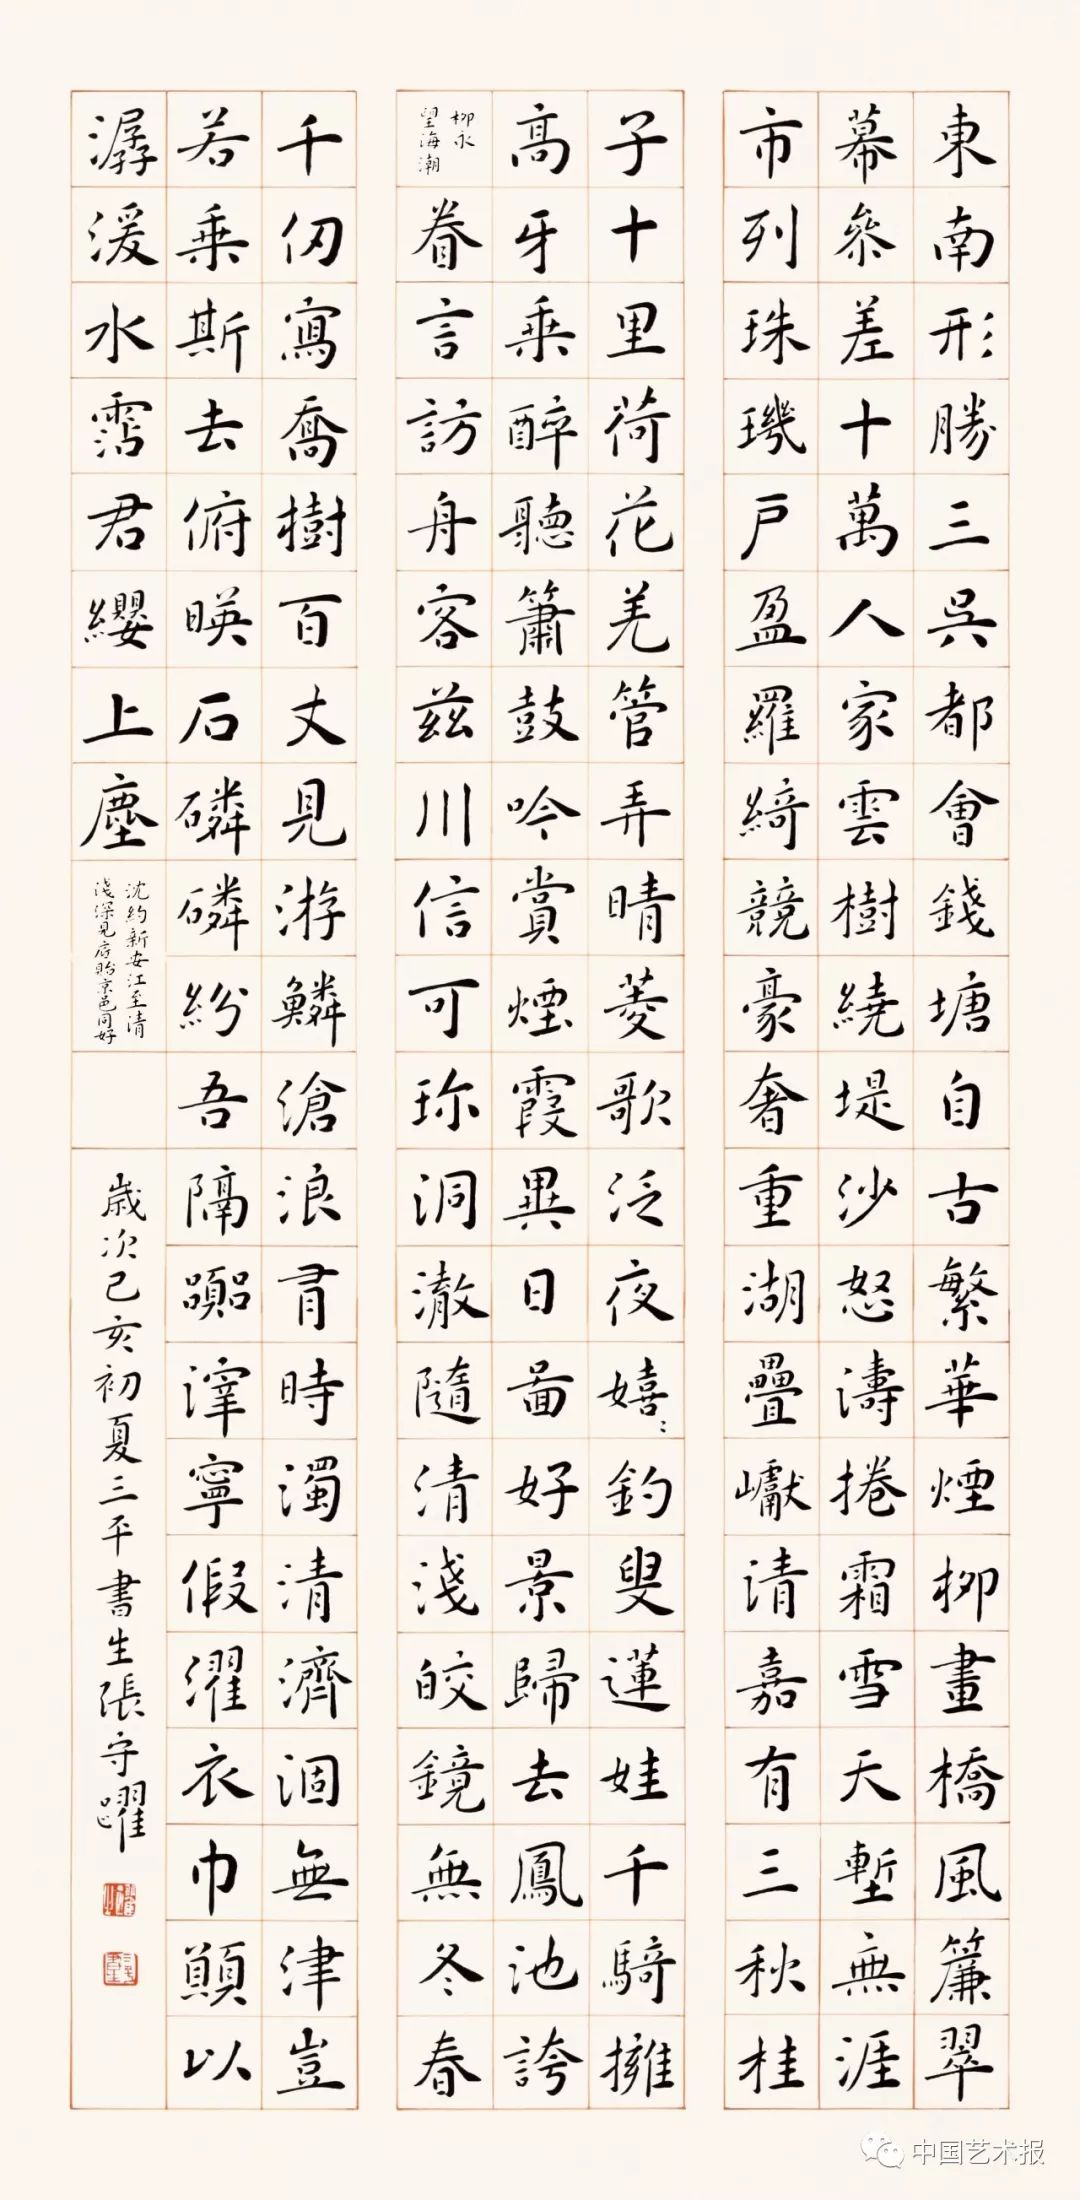 東南形勝三吳都會錢塘自古繁華煙柳畫橋風簾翠
幕參差十萬人家雲樹繞堤沙怒濤捲霜雪天塹無涯
市列珠璣戶盈羅綺競豪奢重湖疊巘清嘉有三秋桂
子十里荷花羌管弄晴菱歌泛夜嬉〻釣叟蓮娃千騎擁
高牙乘醉聽簫鼓吟賞煙霞異日啚好景歸去鳳池誇
柳永
望海潮
眷言訪舟客茲川信可珎洞澈隨清淺皎鏡無冬春
千仞寫喬樹百丈見游鱗滄浪有時濁清濟涸無津豈
若乘斯去俯暎石磷磷紛吾隔囂滓寧假濯衣巾願以
潺湲水霑君纓上塵
沈約新安江至清
淺深見底貽京邑同好
歲次己亥初夏三平書生張守曜
中国艺术报